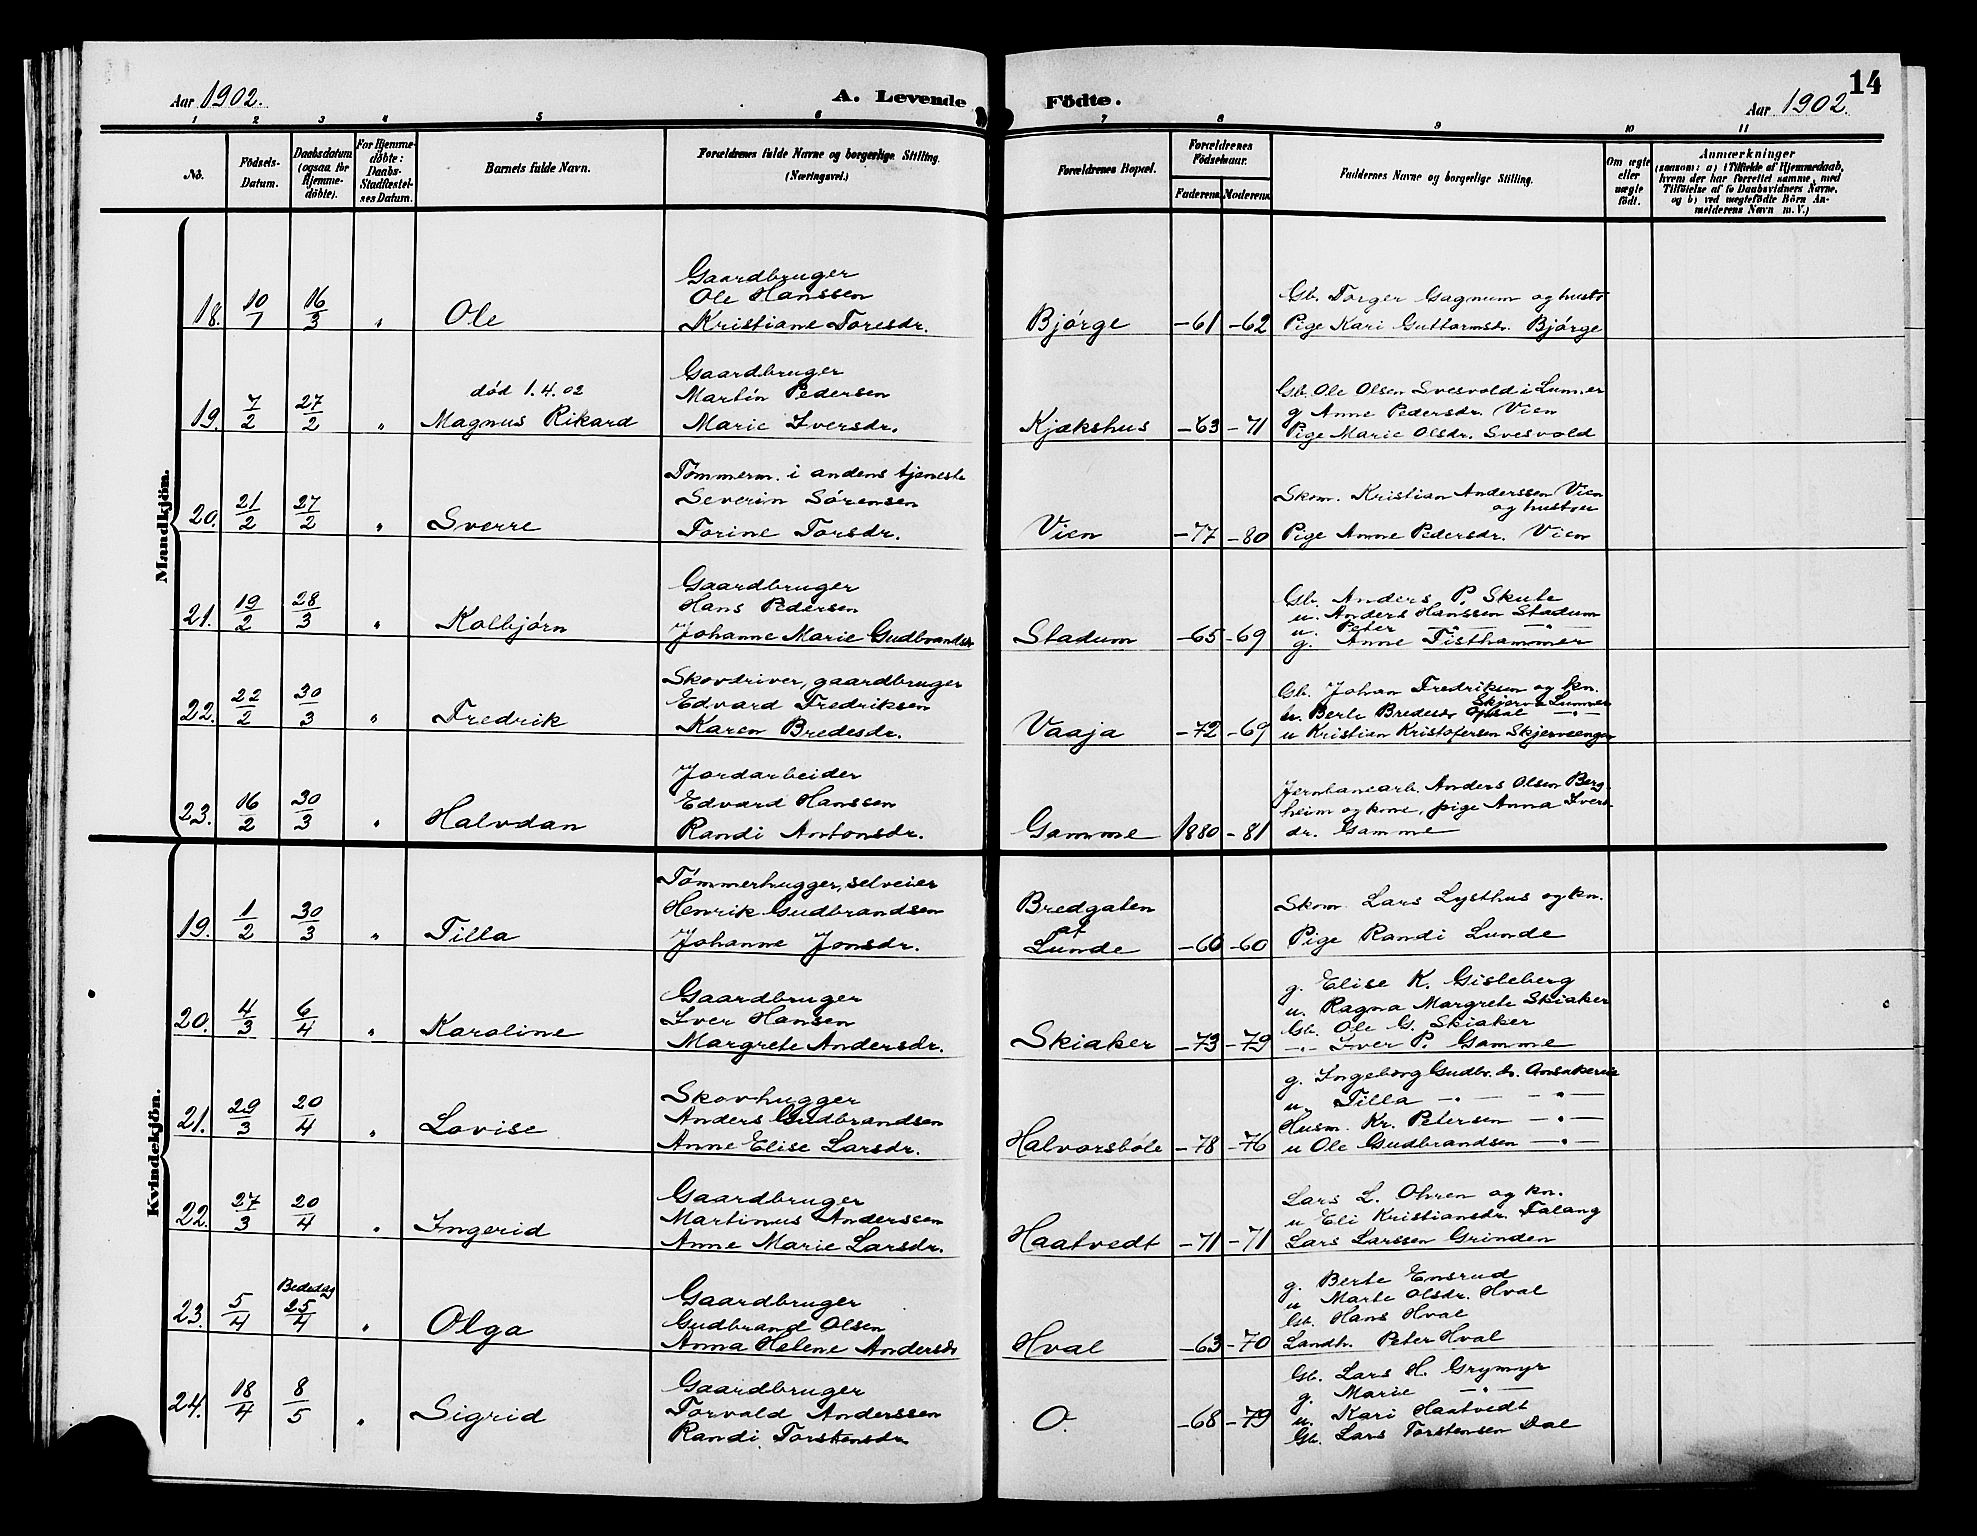 Aar 1902.
A. Levende Födte.
14
Aar 1902.
1 2 3 4 5 6 7 8 9 10 11
No.
Födsels-Datum.
Daabsdatum (ogsaa for Hjemmedöbte).
For Hjemmedöbte: Daabs-Stadfæstelses Datum.
Barnets fulde Navn.
Forældrenes fulde Navne og borgerlige Stilling.
(Næringsvei.)
Forældrenes Bopæl.
Forældrenes Födselsaar.
Faderens. Moderens.
Faddernes Navne og borgerlige Stilling.
Om ægte eller uægte födt.
Anmærkninger
(saasom: a) i Tilfælde af Hjemmedaab, hvem der har forrettet samme, med Tilföielse af to Daabsvidners Navne, og b) ved uægtefödte Börn Anmelderens Navn m. V.)
Mandkjön.
18. 10/1 16/3 " Ole
Gaardbruger
Ole Hanssen
Kristiane Toresdr.
Bjørge -61 -62
Gb. Torger Gagnum og hustr
Pige Kari Guttormsdr. Bjørge
19. 7/2 27/2 "
død 1.4.02
Magnus Rikard
Gaardbruger
Martin Pedersen
Marie Iversdr.
Kjækshus -63 -71
Gb. Ole Olsen Svesvold i Lunner
g Anne Pedersdr. Vien
Pige Marie Olsdr. Svesvold
20. 21/2 27/2 " Sverre
Tømmerm. i andens tjeneste
Severin Sørensen
Torine Torsdr.
Vien -77 -80
Skom. Kristian Anderssen Vien
og hustru
Pige Anne Pedersdr. Vien
21. 19/2 28/3 " Kolbjørn
Gaardbruger
Hans Pedersen
Johanne Marie Gudbrandsdr
Stadum -65 -69
Gb. Anders P. Skute
u. Anders Hanssen Stadum
u. Peter —"— —"—
g. Anne Tisthammer
22. 22/2 30/3 " Fredrik
Skovdriver, gaardbruger
Edvard Fredriksen
Karen Bredesdr.
Vaaja -72 -69
Gb. Johan Fredriksen og kn.
Skjerva Lunner
Berte Bredesdr Opsal —"—
u Kristian Kristofersen Skjervsengen
23. 16/2 30/3 " Halvdan
Jordarbeider
Edvard Hanssen
Randi Antonsdr.
Gamme 1880 -81
Jernbanearb. Anders Olsen Berg-
heim og kone, pige Anna Ivers-
dr. Gamme
Kvindekjön.
19. 1/2 30/3 " Tilla
Tømmerhugger, selveier
Henrik Gudbrandsen
Johanne Jonsdr.
Bredgaten
af
Lunde -60 -60
Skom Lars Lysthus og kn.
Pige Randi Lunde
20. 4/3 6/4 " Karoline
Gaardbruger
Iver Hansen
Margrete Andersdr.
Skiaker -73 -79
g. Elise K. Gisleberg
u. Ragna Margrete Skiaker
Gb. Ole G. Skiaker
-"- Iver P. Gamme
21. 29/3 20/4 " Lovise
Skovhugger
Anders Gudbrandsen
Anne Elise Larsdr.
Halvorsbøle -78 -76
g. Ingeborg Gudbr. dr.
u. Tilla —"— —"—
Husm. Kr. Petersen —"—
u Ole Gudbrandsen —"—
22. 27/3 20/4 " Ingerid
Gaardbruger
Martinus Anderssen
Anne Marie Larsdr.
Haatvedt -71 -71
Lars L. Ohren og kn.
u Eli Kristiansdr. Falang
Lars Larssen Grinden
23. 5/4 Bededag 25/4 " Olga
Gaardbruger
Gudbrand Olsen
Anna Helene Andersdr
Hval -63 -70
g. Berte Ensrud
u Marte Olsdr. Hval
Gb. Hans Hval
Landh. Peter Hval
24. 18/4 8/5 " Sigrid
Gaardbruger
Torvald Anderssen
Randi Torstensdr
O. -68 -79
Gb. Lars H. Grymyr
g. Marie —"—
u. Kari Haatvedt
Gb. Lars Torstensen Dal